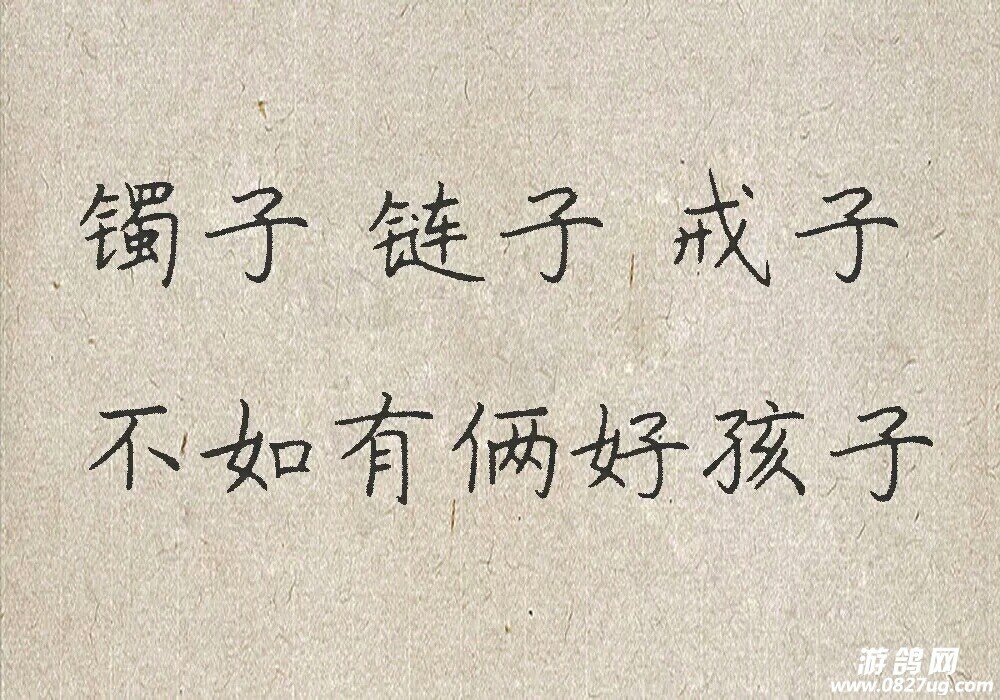 镯子 链子 戒子
不如有俩好孩子
游鸽网
www.0827ug.com